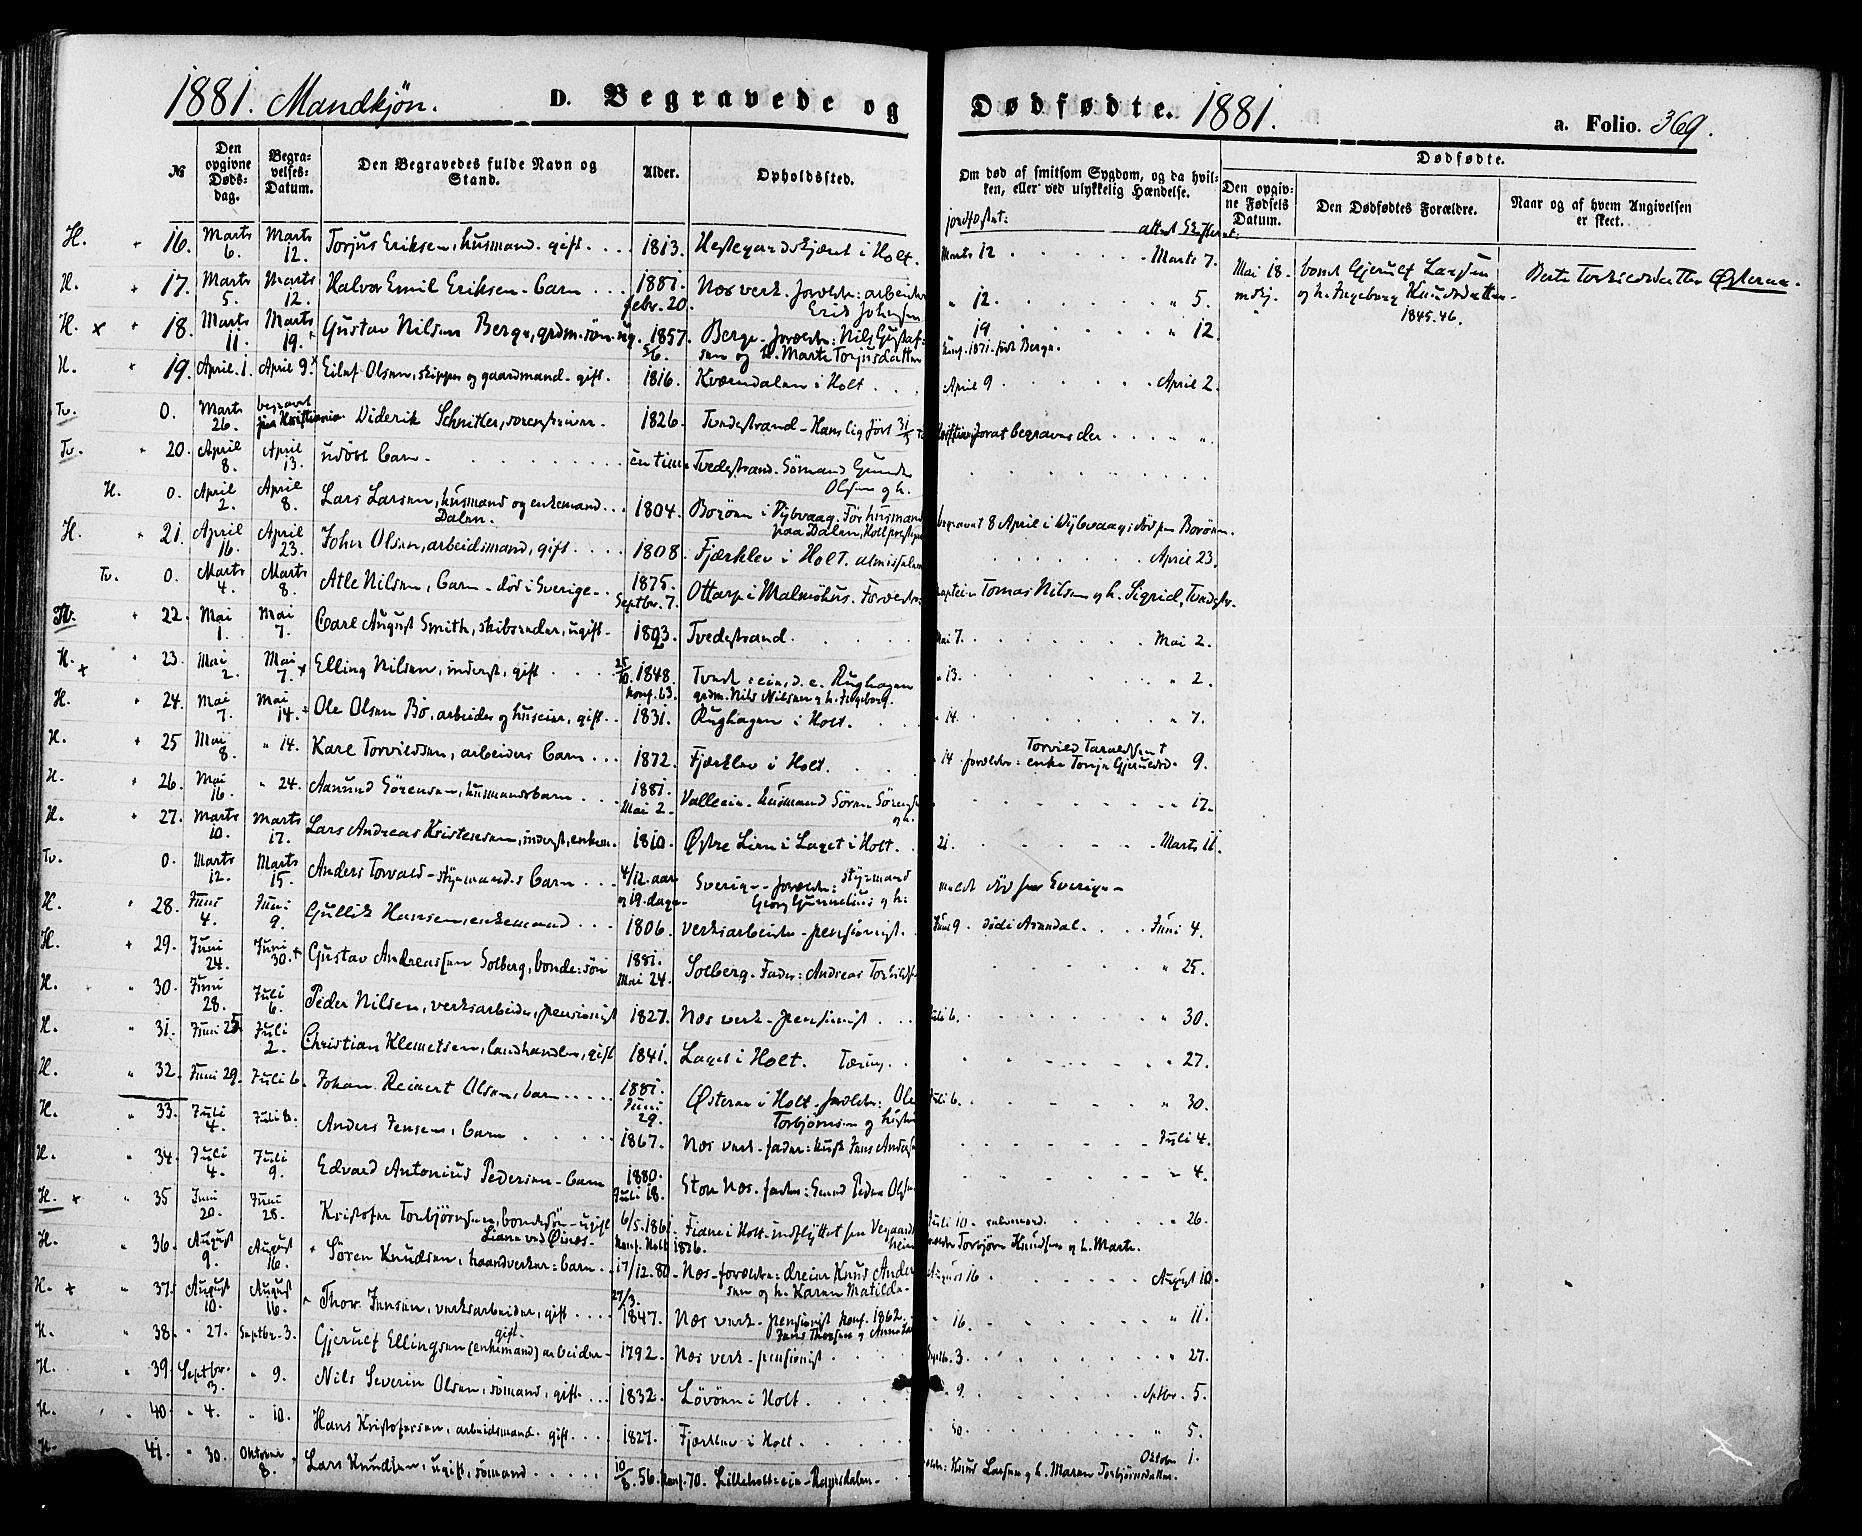 1881. Mandkjøn. D. Begravede og Dødfødte. 1881. a. Folio. 369.
№ Den opgivne Døds-dag. Begra-velses-Datum. Den Begravedes fulde Navn og Stand. Alder. Opholdssted. Om død af smitsom Sygdom, og da hvil-ken, eller ved ulykkelig Hændelse. Dødfødte. Den opgiv-ne Fødsels Datum. Den Dødfødtes Forældre. Naar og af hvem Angivelsen er skeet.
jordfæstet:
H. 16. Marts 6. Marts 12. Torjus Eriksen, husmand. gift. 1813. Hestegardskjæret i Holt. Marts 12 Marts 7.
Mai 18. Gjerulf Larsen og h. Ingeborg Knudsdatter 1845. 46. Østeraa.
H. 17. Marts 5. Marts 12. Halvor Emil Eriksen - barn 1881. febr. 20. Næs verk. forældre: arbeider Erik Johnsen " 12. " 5.
H. x 18. Marts 11. Marts 19. Gustav Nilsen Berge, grdm. søn. ug. 1857. 5/6. Berge. forældre: Nils Gustaf-sen og h. Marte Torjusdatter 19 " 12.
konf. 1871. født Berge.
H. 19. April 1. April 9. x Eilef Olsen, skipper og gaardmand - gift. 1816. Kværndalen i Holt April 9 April 2.
Tv. 0. Marts 26. begravet Diderik Schnitler, sorenskriver. 1826. Tvedestrand - Hans lig ført 31/3 til Kristiania for at begraves der
Tv. 20. April 8. April 13. udøbt barn. en time Tvedestrand. Sømand Gunde Olsen og h.
H. 0. April 2. April 8. Lars Larsen, husmand og enkemand Dalen. 1804. Borøen i Dybvaag. Før husmand paa Dalen, Holt begravet 8 April i Dybvaag, død paa Borøen.
H. 21. April 16. April 23. John Olsen, arbeidsmand, gift. 1808. Fjærklev i Holt. almisselem April 23.
Tv. 0. Marts 4. Marts 8. Atle Nilsen, barn - død i Sverige. 1875. Septbr. 7. Ottarp i Malmöhus. Forældre: kaptein Tomas Nilsen og h. Sigrid, Tvedestr.
Tv. 22. Mai 1. Mai 7. Carl August Smith, skibsreder, ugift. Tvedestrand. Mai 7. Mai 2.
H. x 23. Mai 2. Mai 7. Elling Nilsen, inderst, gift 25/10. 1848. konf. 63. Rughagen grdm. Nils Nilsen og h. Ingeborg. " 13. " 2.
H. 24. Mai 7. Mai 14. Ole Olsen Bø, arbeider og huseier, gift. 1831. Rughagen i Holt. " 14. " 7.
H. 25 Mai 8. " 14. Karl Torvildsen, arbeiders barn 1872. Fjærklev i Holt. " 14 forældre: Torvild Taraldsen † enke Tonje 9.
H. 26. Mai 16. " 24. Aanund Sørensen, husmandsbarn 1881. Mai 2. Valleeie. husmand Søren Sørensen og h. " 17.
H. 27. Marts 10. Marts 17. Lars Andreas Kristensen, inderst, enkem. 1810. Østre Lien i Laget i Holt. 21. Marts 11.
Tv. 0. Marts 12. Marts 15. Anders Torvald - styrmands barn 4/12. aar og 19. dage Sverige - forældre: styrmand Georg Gunnelius og h. meldt død fra Sverige -
H. 28. Juni 4. Juni 9. Gullik Hansen, enkemand 1806. verksarbeider - pensionist. Juni 9 død i Arendal. Juni 4.
H. 29. Juni 24. Juni 30. Gustav Andreassen Solberg, bonde: søn 1881. Mai 24. Solberg - Fader: Andreas " 25.
H. 30. Juni 28. Juli 6. Peder Nilsen, verksarbeider, pensionist 1827. Næs verk - pensionist Juli 6. " 30.
H. 31. Juni 25 Juli 2. Christian Klemetsen, landhandler, gift 1841. Laget i Holt. Tæring. " 27.
H. 32. Juni 29. Juli 6. Johan Reinert Olsen, barn 1881. Juni 29. Østeraa i Holt. forældre: Ole Torbjørnsen og Juli 6. " 30.
H. 33. Juli 4. Juli 8. Anders Jensen, barn 1867. Næs verk - fader: husf. Jens Andersen Juli 4.
H. 34. Juli 4. Juli 9. Edvard Antonius Pedersen - barn 1880. Juli 18. Store Næs. fader: Peder Olsen " 4.
H. x 35 Juni 20. Juni 28. Kristofer Torbjørnsen, bondesøn - ugift 6/5. 1861. Fiane i Holt - indflyttet fra Vegaardsheien Juli 10 - selvmord. " 26.
konf. Holt 1876. Torbjørn Knudsen og h. Marte.
H. 36. August 9. August 16. Søren Knudsen, haandverker: barn 17/12. 80 Næs - forældre: dreier Knud Ander-sen og h. Karen Matilde. August 16 August 10.
H. x 37. August 10. August 16. Thor Jensen, verksarbeider, gift 27/3. 1847. Næs verk - pensionist konf. 1862. Jens Thorsen og Anne " 16. " 11.
H. 38. " 27. Septbr. 3. Gjerulf Ellingsen (enkemand) gift. arbeider. 1792. Næs verk - pensionist Septbr. 3. " 27.
H. 39. Septbr. 3. " 9. Nils Severin Olsen, sømand, gift. 1832. Løvøen i Holt. " 9. Sptbr. 5.
H. 40. " 4. " 10. Hans Kristofersen, arbeidsmand. gift. 1827. Fjærklev i Holt. " 10. " 5.
H. 41. " 30. Oktober 8. Lars Knudsen, ugift, sømand 10/8. 56. konf. 70. Lilleholt-eie - Ramsdalen. Knud Larsen og h. Maren Torbjørnsdatter. Oktober 1.